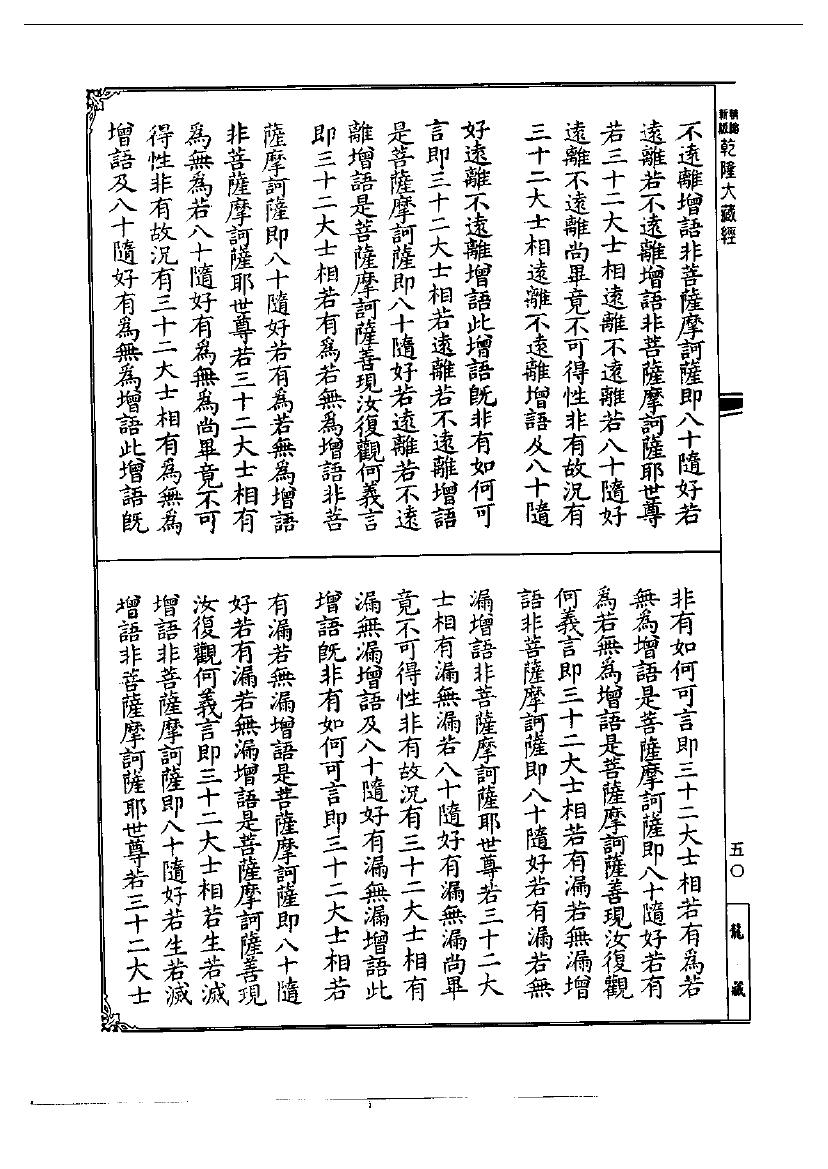 新編
縮版
乾隆大藏經
不遠離增語非菩薩摩訶薩即八十隨好若
遠離若不遠離增語非菩薩摩訶薩耶世尊
若三十二大士相遠離不遠離若八十隨好
遠離不遠離尚畢竟不可得性非有故況有
三十二大士相遠離不遠離增語及八十隨
好遠離不遠離增語此增語既非有如何可
言即三十二大士相若遠離若不遠離增語
是菩薩摩訶薩即八十隨好若遠離若不遠
離增語是菩薩摩訶薩善現汝復觀何義言
即三十二大士相若有為若無為增語非菩
薩摩訶薩即八十隨好若有為若無為增語
非菩薩摩訶薩耶世尊若三十二大士相有
為無為若八十隨好有為無為尚畢竟不可
得性非有故況有三十二大士相有為無為
增語及八十隨好有為無為增語此增語既
非有如何可言即三十二大士相若有為若
無為增語是菩薩摩訶薩即八十隨好若有
為若無為增語是菩薩摩訶薩善現汝復觀
何義言即三十二大士相若有漏若無漏增
語非菩薩摩訶薩即八十隨好若有漏若無
漏增語非菩薩摩訶薩耶世尊若三十二大
士相有漏無漏若八十隨好有漏無漏尚畢
竟不可得性非有故況有三十二大士相有
漏無漏增語及八十隨好有漏無漏增語此
增語既非有如何可言即三十二大士相若
有漏若無漏增語是菩薩摩訶薩即八十隨
好若有漏若無漏增語是菩薩摩訶薩善現
汝復觀何義言即三十二大士相若生若滅
增語非菩薩摩訶薩即八十隨好若生若滅
增語非菩薩摩訶薩耶世尊若三十二大士
五〇
龍藏